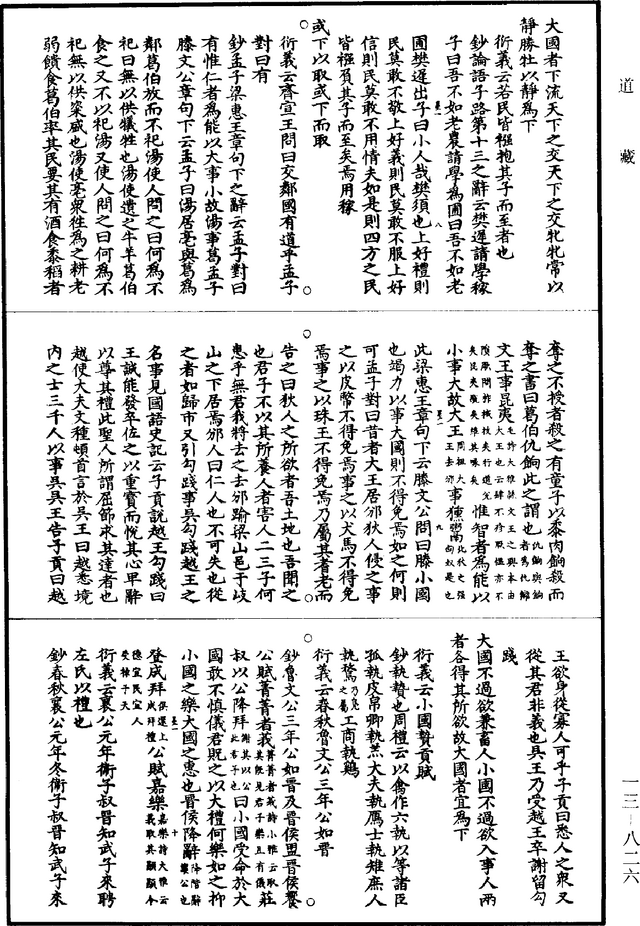 道藏
大國者下流天下之交天下之交牝牝常以
靜勝牡以靜為下
衍義云若民皆襁抱其子而至者也
鈔論語子路第十三之辭云樊遲請學稼
子曰吾不如老農請學為圃曰吾不如老
圃樊遲出子曰小人哉樊須也上好禮則
民莫敢不敬上好義則民莫敢不服上好
信則民莫敢不用情夫如是則四方之民
皆襁負其子而至矣焉用稼
或下以取或下而取
衍義云齊宣王問曰交鄰國有道乎孟子
對曰有
鈔孟子梁惠王章句下之辭云孟子對曰
有惟仁者為能以大事小故湯事葛孟子
滕文公章句下云孟子曰湯居亳與葛為
鄰葛伯放而不祀湯使人問之曰何為不
祀曰無以供犧牲也湯使遺之牛羊葛伯
食之又不以祀湯又使人問之曰何為不
祀曰無以供粢盛也湯使亳眾往為之耕老
弱饋食葛伯率其民要其有酒食黍稻者
奪之不授者殺之有童子以黍肉餉殺而
奪之書曰葛伯仇餉此之謂也
文王事昆夷
惟智者為能以
小事大故大王事獯鬻
此梁惠王章句下云滕文公問曰滕小國
也竭力以事大國則不得免焉如之何則
可孟子對曰昔者大王居邠狄人侵之事
之以皮幣不得免焉事之以犬馬不得免
焉事之以珠玉不得免焉乃屬其耆老而
告之曰狄人之所欲者吾土地也吾聞之
也君子不以其所養人者害人二三子何
患乎無君我將去之去邠踰梁山邑于岐
山之下居焉邠人曰仁人也不可失也從
之者如歸市又引勾踐事吳勾踐越王之
名事見國語史記云子貢說越王勾踐曰
王誠能發卒佐之以重寶而悅其心卑辭
以尊其禮此聖人所謂屈節求其達者也
越使大夫文種頓首言於吳王曰越悉境
內之士三千人以事吳吳王告子貢曰越
王欲身從寡人可乎子貢曰悉人之眾又
從其君非義也吳王乃受越王卒謝留勾
踐
大國不過欲兼畜人小國不過欲入事人兩
者各得其所欲故大國者宜為下
衍義云小國贄貢賦
鈔執贄也周禮云以禽作六執以等諸臣
孤執皮帛卿執羔大夫執鴈士執雉庶人
執鶩工商執鷄
衍義云春秋魯文公三年公如晉
鈔魯文公三年公如晉及晉侯盟晉侯饗
公賦菁菁者莪莊
叔以公降拜曰小國受命於大
國敢不慎儀君貺之以大禮何樂如之抑
小國之樂大國之惠也晉侯降辭
登成拜公賦嘉樂
衍義云襄公元年衛子叔晉知武子來聘
左氏以禮也
鈔春秋襄公元年冬衛子叔晉知武子來
一三—八二六